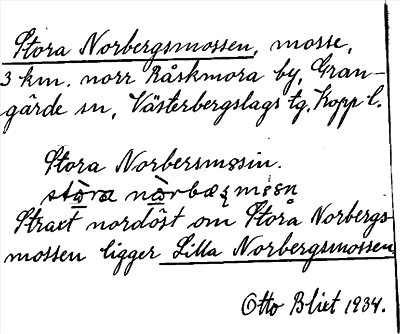 Stora Norbergsmossen, mosse,
3 km. norr Råskmora by, Gran-
gärde sn, Västerbergslags tg, Kopp. l.
Stora Norbersmssin.
Straxt nordöst om Stora Norbergs-
mossen ligger Lilla Norbergsmossen
Otto Blixt 1934.